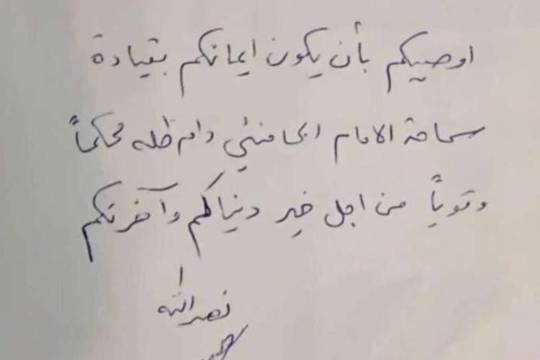 اوصيكم بأن يكون ايمانكم بقيادة
سماحة الامام الخامنئي دام ظله محكماً
وقوياً من اجل خير دنياكم وآخرتكم
نصرالله